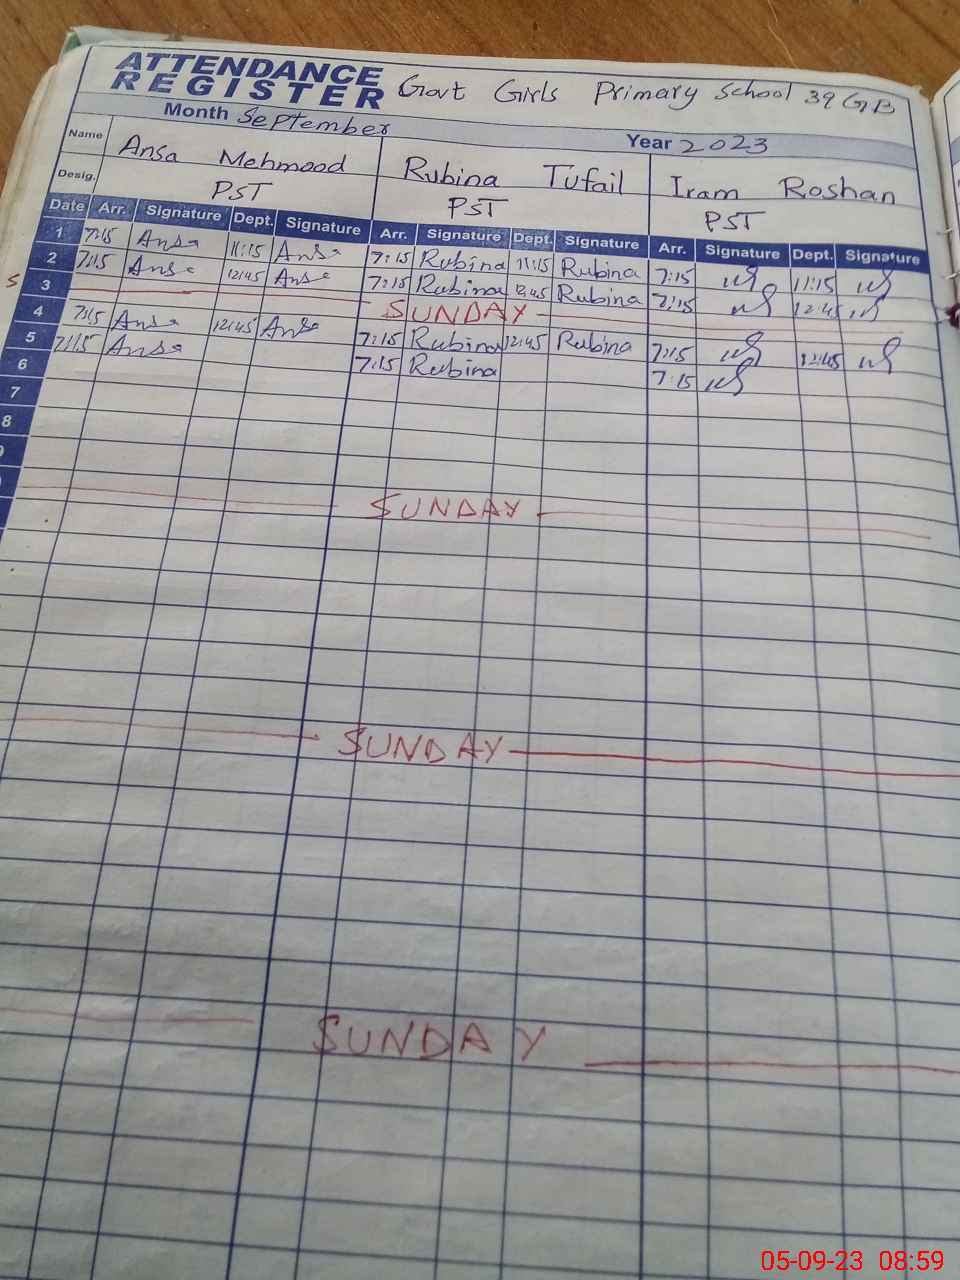 ATTENDANCE REGISTER Govt Girls Primary School 39 GB
Month September Year 2023
Name Ansa Mehmood Rubina Tufail Iram Roshan
Desig. PST PST PST
Date Arr. Signature Dept. Signature Arr. Signature Dept. Signature Arr. Signature Dept. Signature
1 7:15 Ansa 11:15 Ansa 7:15 Rubina 11:15 Rubina 7:15 11:15
2 7:15 Ansa 12:45 Ansa 7:15 Rubina 12:45 Rubina 7:15 12:45
S 3 SUNDAY
4 7:15 Ansa 12:45 Ansa 7:15 Rubina 12:45 Rubina 7:15 12:45
5 7:15 Ansa 7:15 Rubina 7:15
6
7
8
SUNDAY
SUNDAY
SUNDAY
05-09-23 08:59